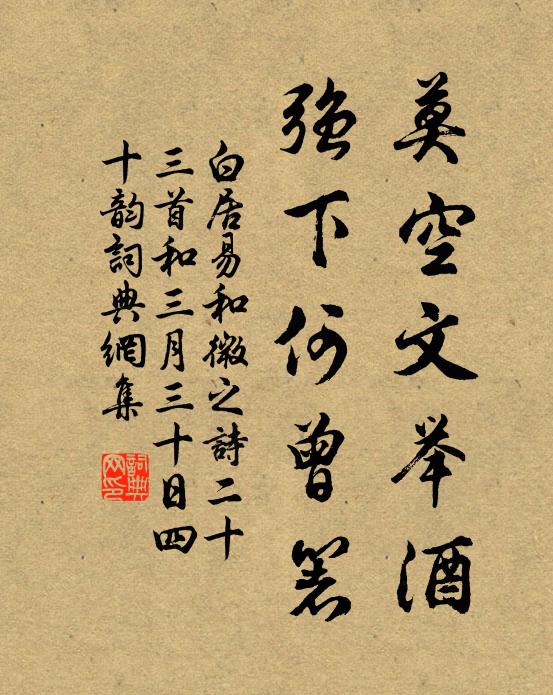 莫空文举酒
強下何曾箸
白居易和微之詩二十
三首和三月三十日四
十韵詞典網集
詞典网印